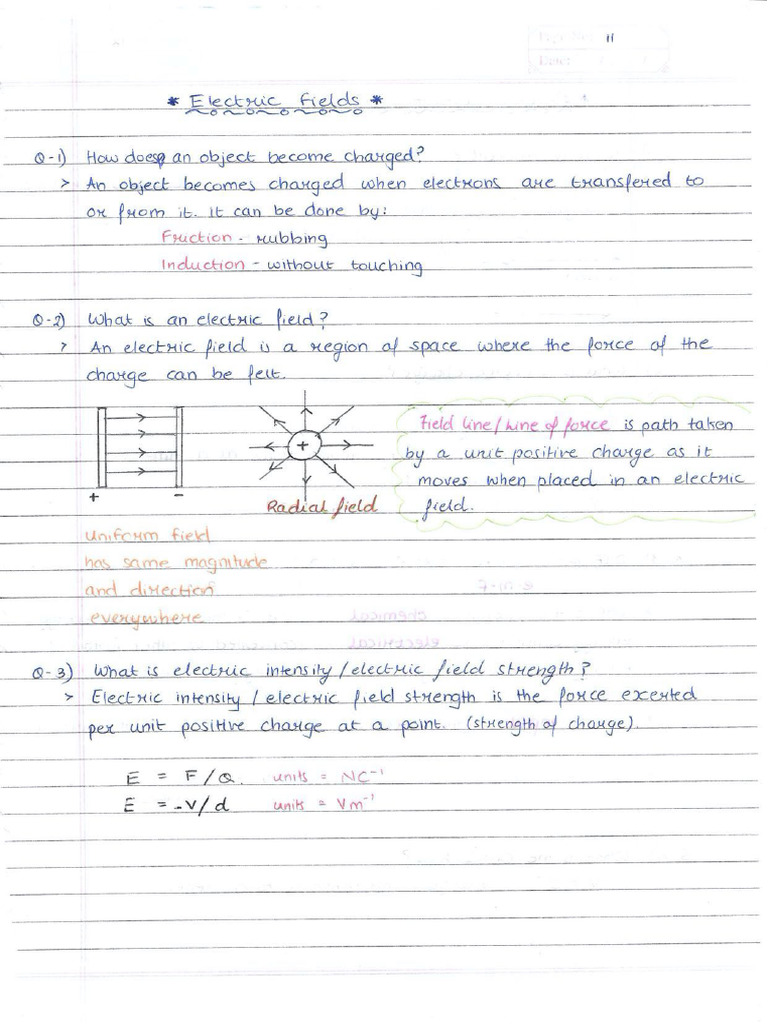 11
* Electric Fields *
Q-1) How does an object become charged?
> An object becomes charged when electrons are transfered to
or from it. It can be done by:
Friction - rubbing
Induction - without touching
Q-2) What is an electric field?
> An electric field is a region of space where the force of the
charge can be felt.
+ -
+
Radial field
Field line/Line of force is path taken
by a unit positive charge as it
moves when placed in an electric
field.
uniform field
has same magnitude
and direction
everywhere
Q-3) What is electric intensity/electric field strength?
> Electric intensity/electric field strength is the force exerted
per unit positive charge at a point. (strength of charge).
E = F/Q. units = NC⁻¹
E = -V/d units = Vm⁻¹